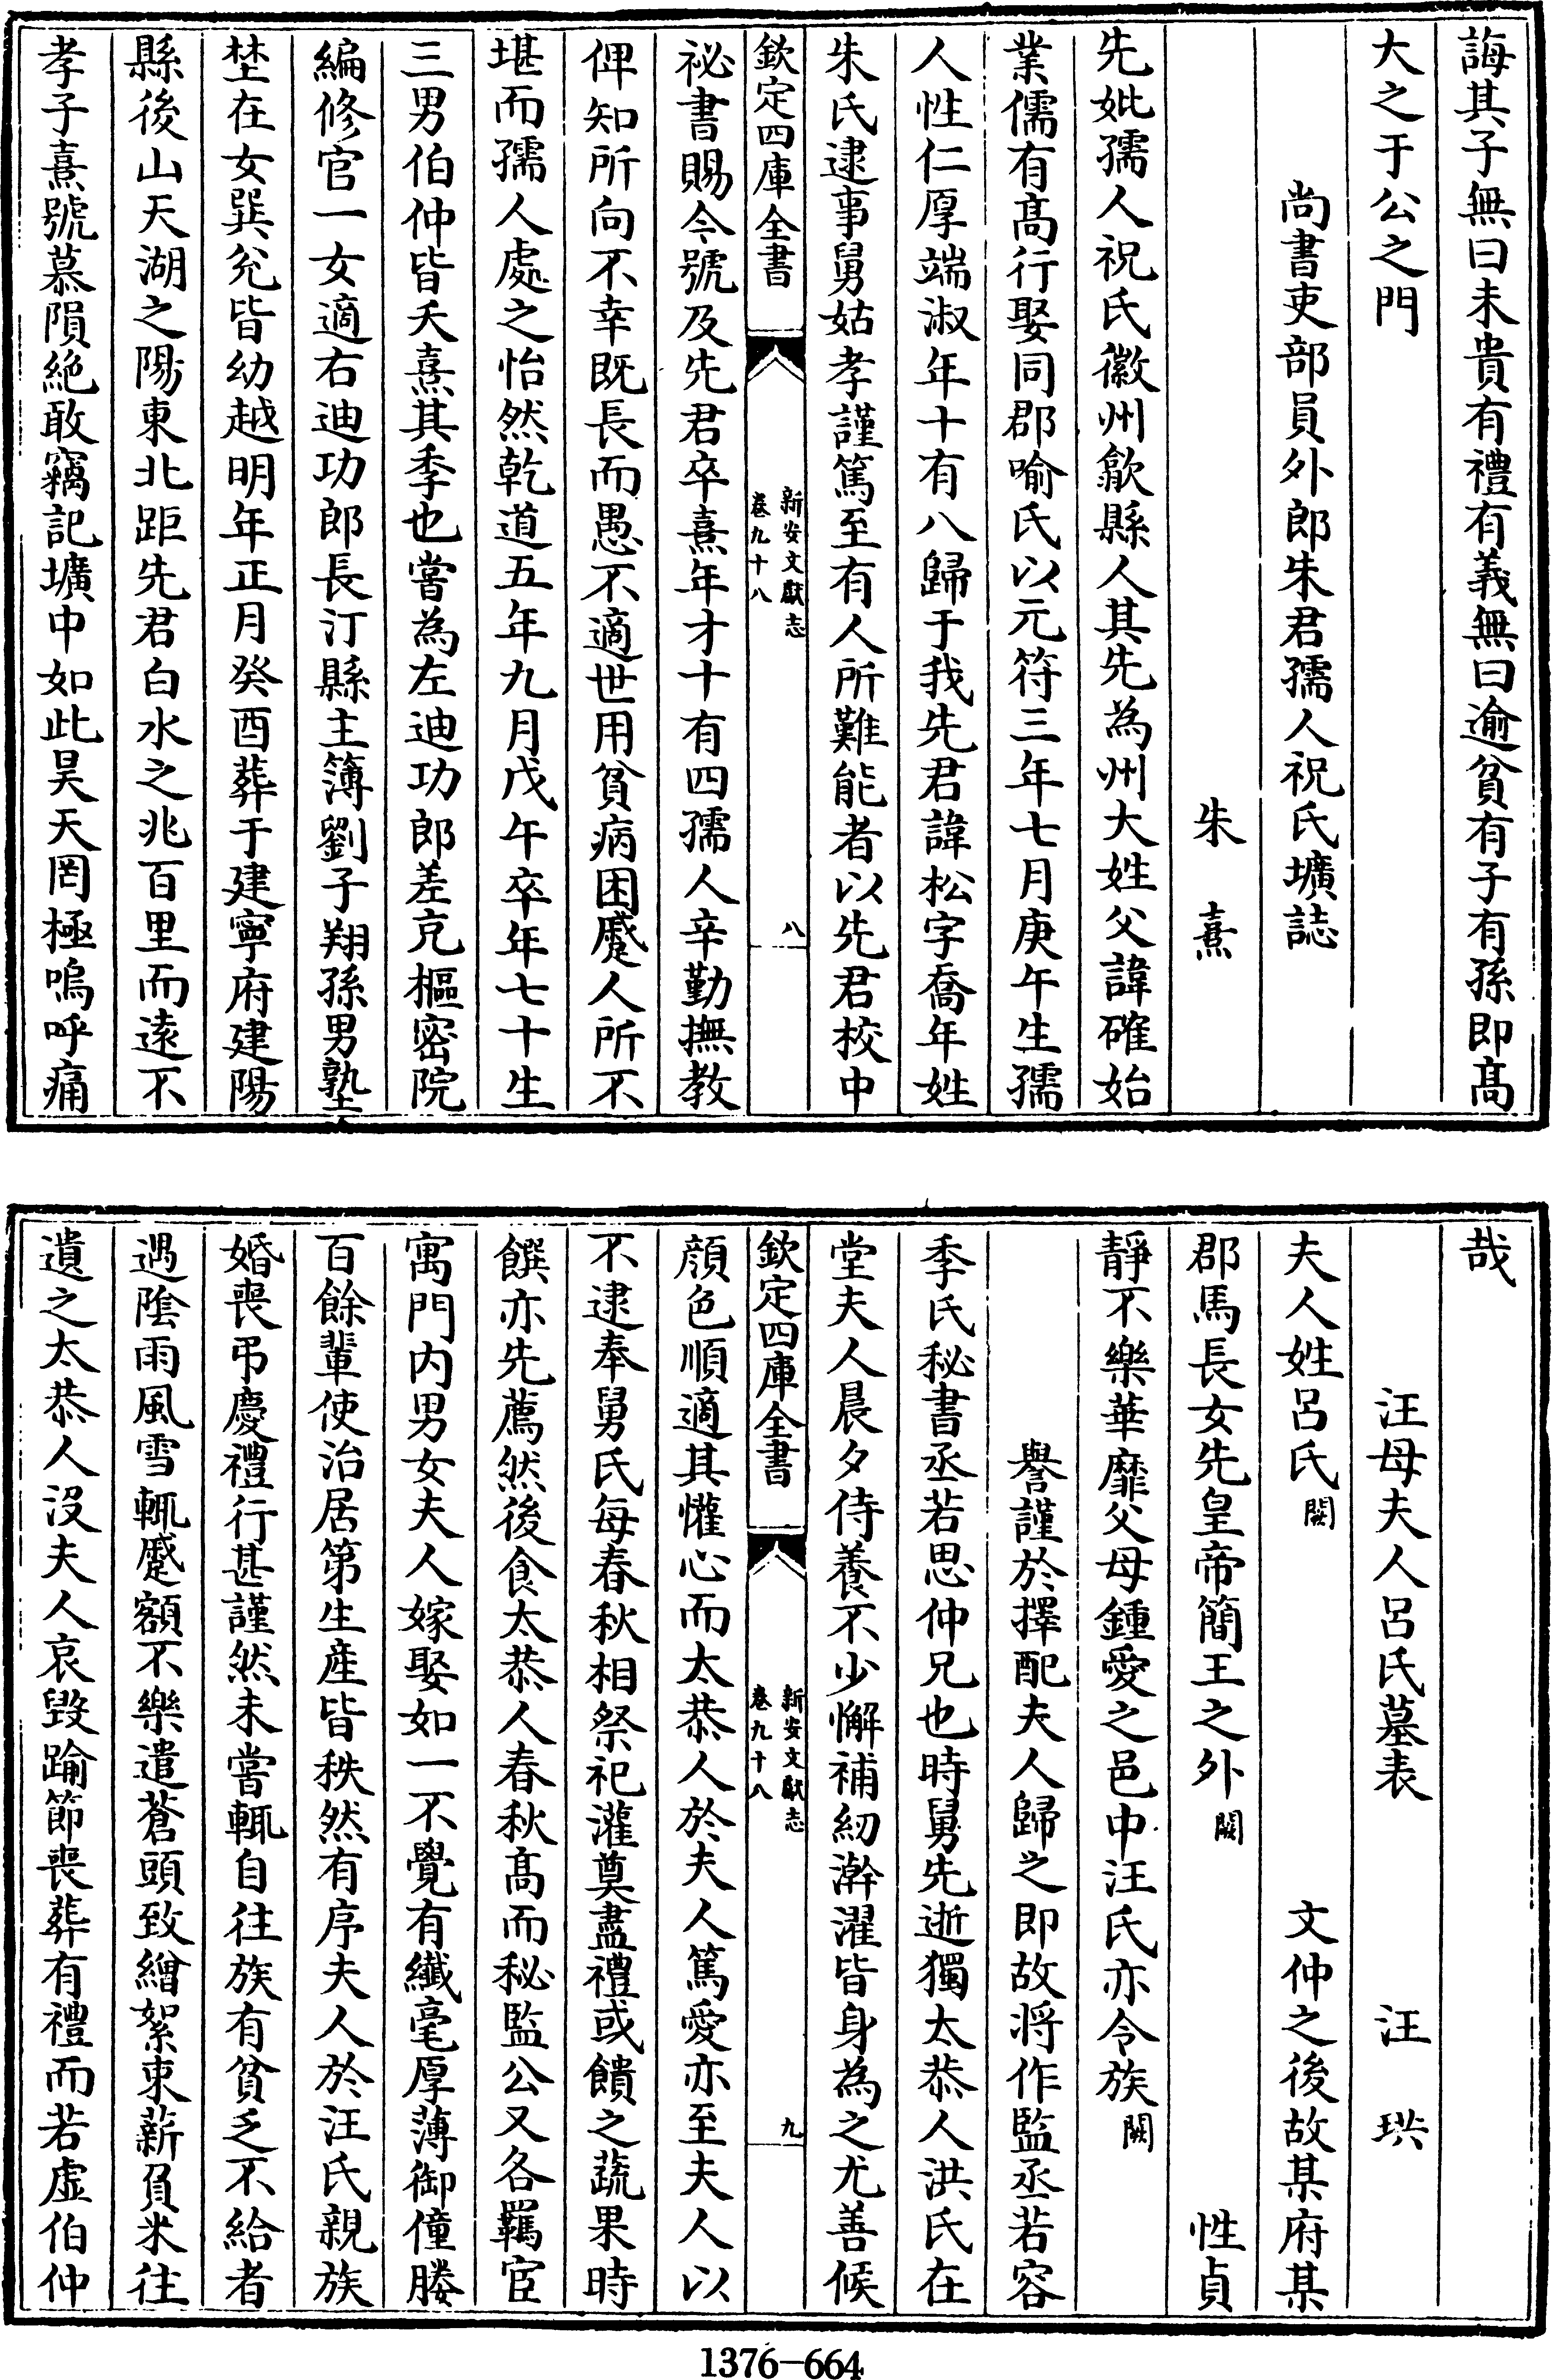 誨其子無曰未貴有禮有義無曰逾貧有子有孫即髙
大之于公之門
尚書吏部員外郎朱君孺人祝氏壙誌
朱熹
先妣孺人祝氏徽州歙縣人其先為州大姓父諱確始
業儒有髙行娶同郡喻氏以元符三年七月庚午生孺
人性仁厚端淑年十有八歸于我先君諱松字喬年姓
朱氏逮事舅姑孝謹篤至有人所難能者以先君校中
欽定四庫全書
新安文獻志
卷九十八
八
祕書賜今號及先君卒熹年才十有四孺人辛勤撫教
俾知所向不幸既長而愚不適世用貧病困蹙人所不
堪而孺人處之怡然乾道五年九月戊午卒年七十生
三男伯仲皆夭熹其季也嘗為左迪功郎差充樞密院
編修官一女適右迪功郎長汀縣主簿劉子翔孫男塾
埜在女巽兊皆幼越明年正月癸酉葬于建寧府建陽
縣後山天湖之陽東北距先君白水之兆百里而逺不
孝子熹號慕隕絶敢竊記壙中如此昊天罔極嗚呼痛
哉
汪母夫人呂氏墓表
汪珙
夫人姓呂氏闕文仲之後故某府某
郡馬長女先皇帝簡王之外闕性貞
靜不樂華靡父母鍾愛之邑中汪氏亦令族闕
譽謹於擇配夫人歸之即故將作監丞若容
季氏秘書丞若思仲兄也時舅先逝獨太恭人洪氏在
堂夫人晨夕侍養不少懈補紉澣濯皆身為之尤善候
欽定四庫全書
新安文獻志
卷九十八
九
顔色順適其懽心而太恭人於夫人篤愛亦至夫人以
不逮奉舅氏每春秋相祭祀灌奠盡禮或饋之蔬果時
饌亦先薦然後食太恭人春秋髙而秘監公又各羈宦
寓門内男女夫人嫁娶如一不覺有纎毫厚薄御僮媵
百餘輩使治居第生産皆秩然有序夫人於汪氏親族
婚喪弔慶禮行甚謹然未嘗輒自往族有貧乏不給者
遇隂雨風雪輒蹙額不樂遣蒼頭致繒絮束薪負米往
遺之太恭人沒夫人哀毁踰節喪葬有禮而若虚伯仲
1376-664